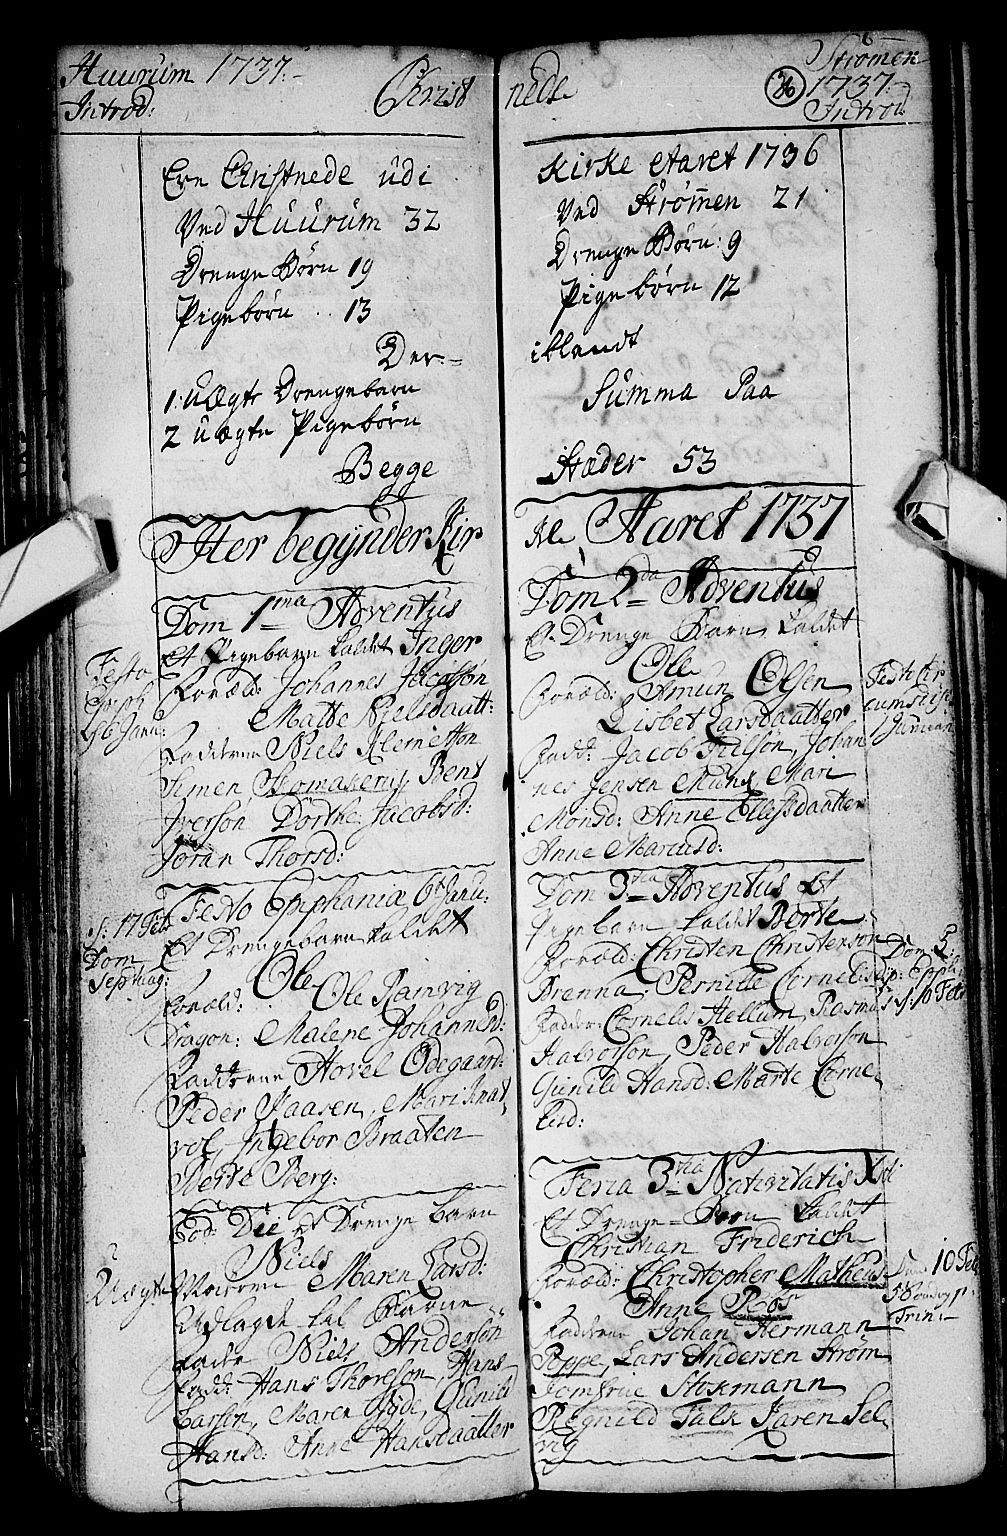 Huurum 1737.
Introd:
Christ
Ere Christnede udi
Ved Huurum 32
Drenge Börn 19
Pigebörn .. 13
Der=
1 Uægte Drengebarn
2 uægte Pigebörn
Begge
Her begynder Kir
Dom 1ma Adventus
Et Pigebarn kaldet Inger
Foræld: Johannes Jacobsön
Matte Nielsdaatt:
Fadderne Niels Klemetsön
Simen Bent
Iversön Dorthe Jacobsd:
Jöran Thorsd:
Festo
Epiph
d. 6 Janu:
Festo Epiphania 6t Janu:
Et Drengebarn kaldet
Ole
Foræld: Ole Ramvig
Dragon: Malene Johannesd:
Fadderne Hovel Odegaard:
Peder Aasen, Mari Knat
vol, Ingebor Braaten
Berte Berg:
d: 17 Feb
Dom
Septuag:
Eod: Die et Drenge barn
Niels
Moderen Maren Larsd:
Udlagde til Barne
Fader Niels Andersön
Fadd: Hans Thoresön, Hans
Larsen, Maren Gunild
Hansd: Anne Hansdaatter
Uægte
Strömen
26
1737.
Introd
nede
Kirke Aaret 1736
Ved Strömen 21
Drenge Börn: 9
Pigebörn 12
iblandt
Summa Paa
Stæder 53
ke Aaret 1737
Dom 2da Adventus
Et Drenge Barn kaldet
Ole
Foræld: Amun Olsen
Lisbet Larsdaatter
Fadd: Jacob Johan
nes Jensen Munk Mari
Monsd: Anne Ellefsdaatter
Anne Mariusd:
Festo Cir
cumsis
1 Januar
Dom 3tia Adventus Et
Pigebarn kaldet Berte
Foræld: Christen Christensön
Brenna, Pernille Cornelisd
Fadder: Cornelis Hellum, Rasmus
Halvorsön, Peder Halvorsön
Gunild Hansd: Marte Corne
lisd:
Dom 5
p: Epiph
d: 10 Feb
Feria 3tia Nativitatis Xsti
Et Drenge=Barn kaldet
Christian Friderich
Foræld: Christopher Matheus
Anne Roos
Fadderne Johan Hermann
Poppe, Lars Andersen Ström
Jomfrue Stokmann
Regnild Falk Karen Sel
vig
10 Feb
Trin: